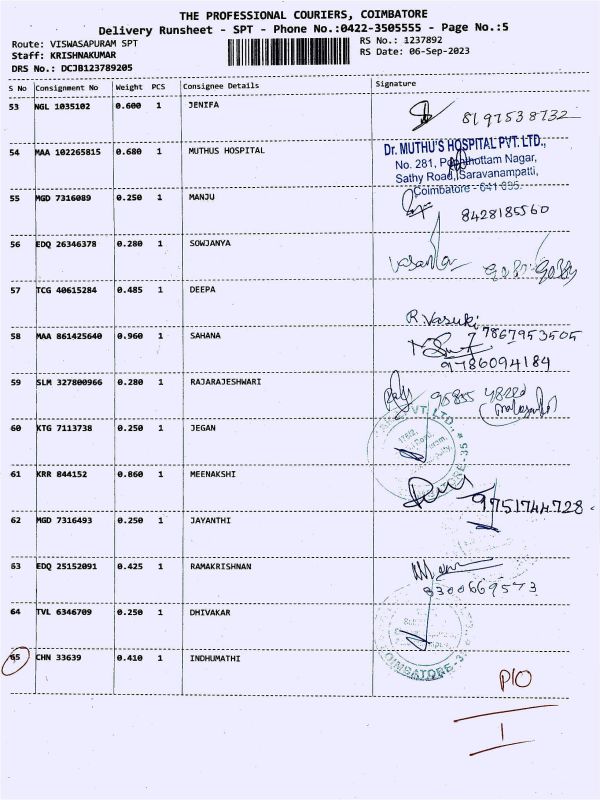 THE PROFESSIONAL COURIERS, COIMBATORE
Delivery Runsheet - SPT - Phone No.:0422-3505555 - Page No.:5
Route: VISWASAPURAM SPT
RS No.: 1237892
Staff: KRISHNAKUMAR
RS Date: 06-Sep-2023
DRS No.: DCJB123789205
S No Consignment No Weight PCS Consignee Details Signature
53 NGL 1035102 0.600 1 JENIFA
8197538732
54 MAA 102265815 0.680 1 MUTHUS HOSPITAL
Dr. MUTHU'S HOSPITAL PVT. LTD.,
No. 281, Poonthottam Nagar,
Sathy Road, Saravanampatti,
Coimbatore - 641 035.
55 MGD 7316089 0.250 1 MANJU
8428185560
56 EDQ 26346378 0.280 1 SOWJANYA
57 TCG 40615284 0.485 1 DEEPA
R.Vasuki
7867953505
58 MAA 861425640 0.960 1 SAHANA
9786094184
59 SLM 327800966 0.280 1 RAJARAJESHWARI
60 KTG 7113738 0.250 1 JEGAN
61 KRR 844152 0.860 1 MEENAKSHI
9751744728
62 MGD 7316493 0.250 1 JAYANTHI
63 EDQ 25152091 0.425 1 RAMAKRISHNAN
8300669573
64 TVL 6346709 0.250 1 DHIVAKAR
65 CHN 33639 0.410 1 INDHUMATHI
COIMBATORE-35
P/O
1